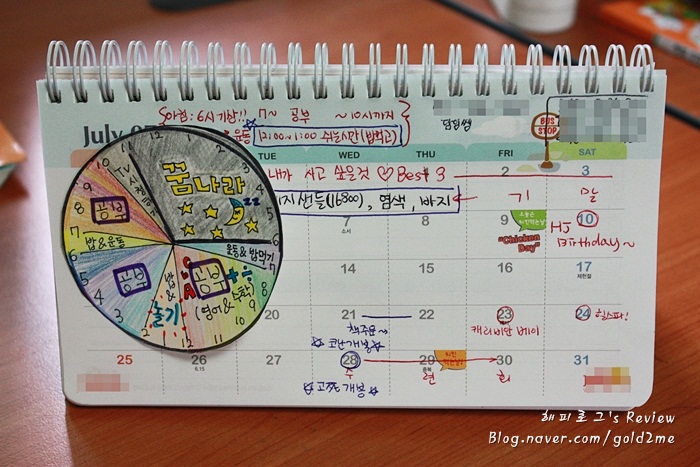 아침: 6시 기상!! 7~ 공부 ~10시까지
July 운동 12:00~1:00 쉬는시간 (밥먹고)
담임쌤
BUS STOP
TUE WED THU FRI SAT
내가 사고 싶을것 ♡Best 3
2 3
기 말
(16800), 염색, 바지
7 소서
8
9
"Chicken Day"
10
HJ Birthday~
14 15 16 17
제헌절
21 22 23 24
책주문~
캐리비안 베이
힐스파!
25 26 27 28 29 30 31
6.15
중복
꿈나라
zz
공부
밥&운동
운동&밥먹기
공부
공부
(영어&수학)
놀기
12 1 2 3 4 5 6 7 8 9 10 11 12 1 2 3 4 5 6 7 8 9 10
해피로그's Review
Blog.naver.com/gold2me